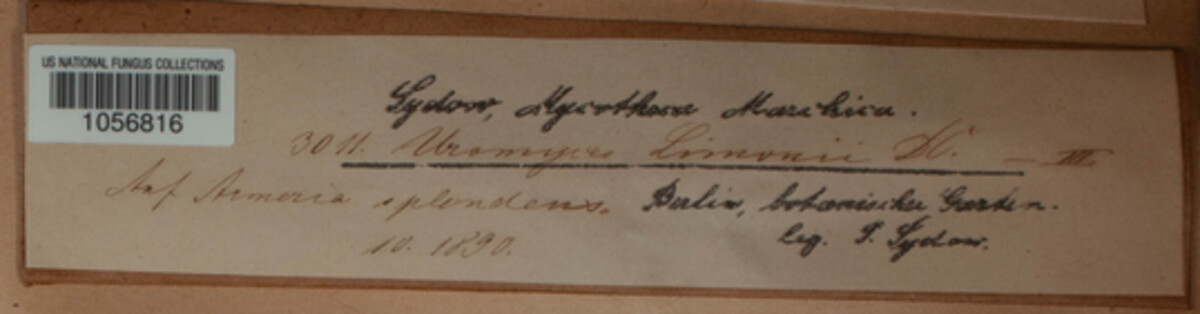 US NATIONAL FUNGUS COLLECTIONS
1056816
Sydow, Mycotheca Marchica.
3011. Uromyces Limonii DC. — III.
Auf Armeria splendens. Berlin, botanischer Garten.
10. 1890. leg. P. Sydow.